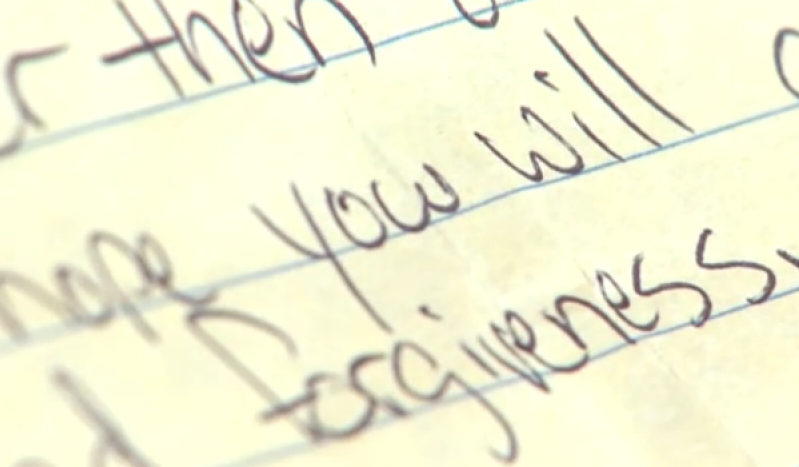 then
hope you will
forgiveness.